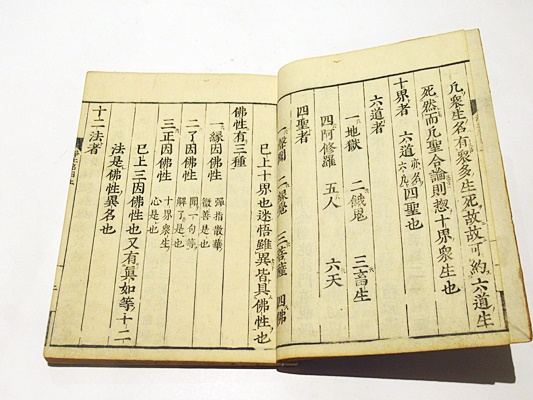 凡衆生名有衆多生死故故可約六道生
死然而凡聖合論則惣十界衆生也
十界者 六道亦名六凡四聖也
六道者
一地獄 二餓鬼 三畜生
四阿修羅 五人 六天
四聖者
一聲聞 二縁覺 三菩薩 四佛
已上十界也迷悟雖異皆具佛性也
佛性有三種
一縁因佛性 彈指散華微善是也
二了因佛性 聞一句等解了是也
三正因佛性 十界衆生心是也
已上三因佛性也又有眞如等十二
法是佛性異名也
十二法者